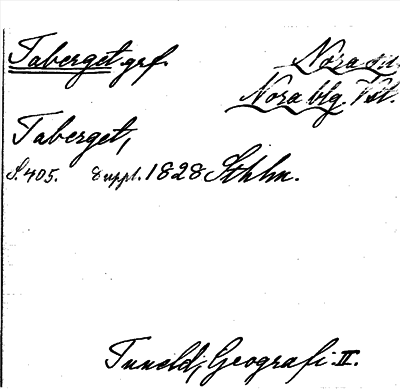 Taberget grf. Nora sn.
Nora blg. Vstm.
Taberget,
S. 405. Suppl. 1828 Sthlm.
Tuneld, Geografi II.